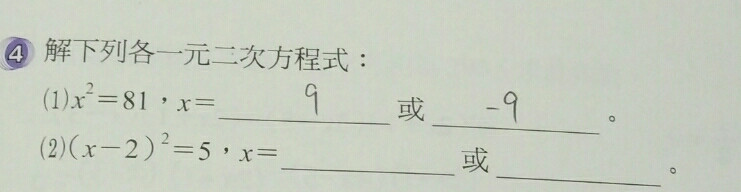 4 解下列各一元二次方程式：
(1)x²=81，x= 9 或 -9 。
(2)(x-2)²=5，x=______或______。